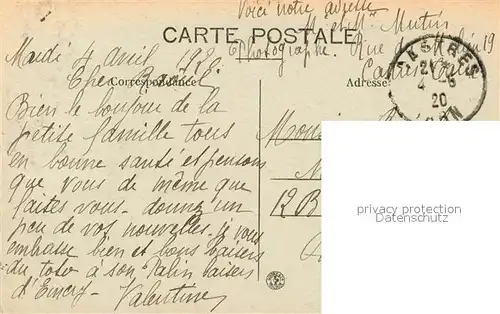 Voici notre adresse
CARTE POSTALE
Mr et Mme Mutin
Photographe. Rue 19
Castres
Mardi 4 1920.
Correspondance
Adresse
CASTRES
4 -5
20
TARN
Bien le bonjour de la
petite famille tous
en bonne santé et pensons
que vous de même que
faites vous. donnez un
peu de vos nouvelles. je vous
embrasse bien et bons baisers
du toto à son baisers
d'Emery. Valentine
12 B
privacy protection
datenschutz